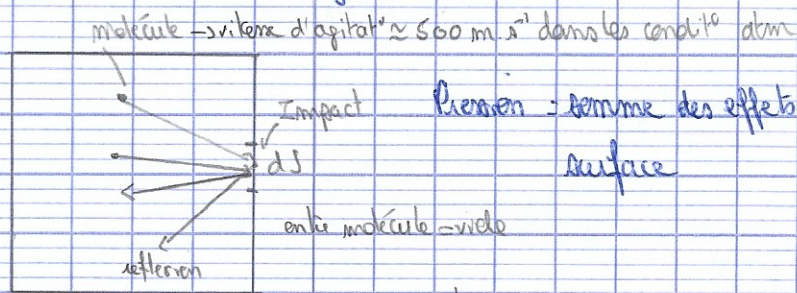 molécule → vitesse d'agitat° ≈ 500 m.s⁻¹ dans les condit° atm
Impact
Pression = somme des effets
dS
surface
entre molécule = vide
reflexion